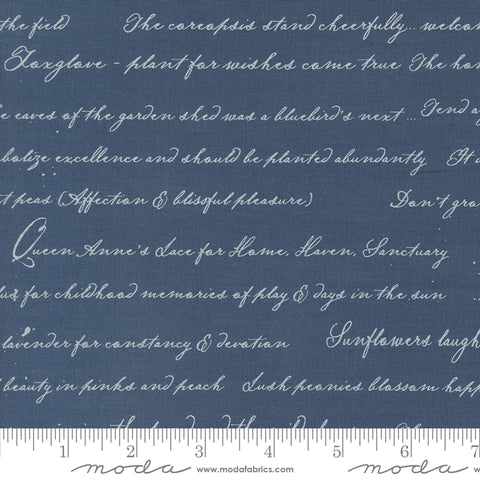 the field The coreopsis stand cheerfully... welcom
Foxglove - plant for wishes come true The hon
e eaves of the garden shed was a bluebird's next ... Tend a
bolize excellence and should be planted abundantly It
t peas (Affection & blissful pleasure) Don't gro
Queen Anne's Lace for Home, Haven, Sanctuary
for childhood memories of play & days in the sun
lavender for constancy & devotion Sunflowers laugh
beauty in pinks and peach Lush peonies blossom happ
1 2 3 4 5 6 7
moda www.modafabrics.com moda